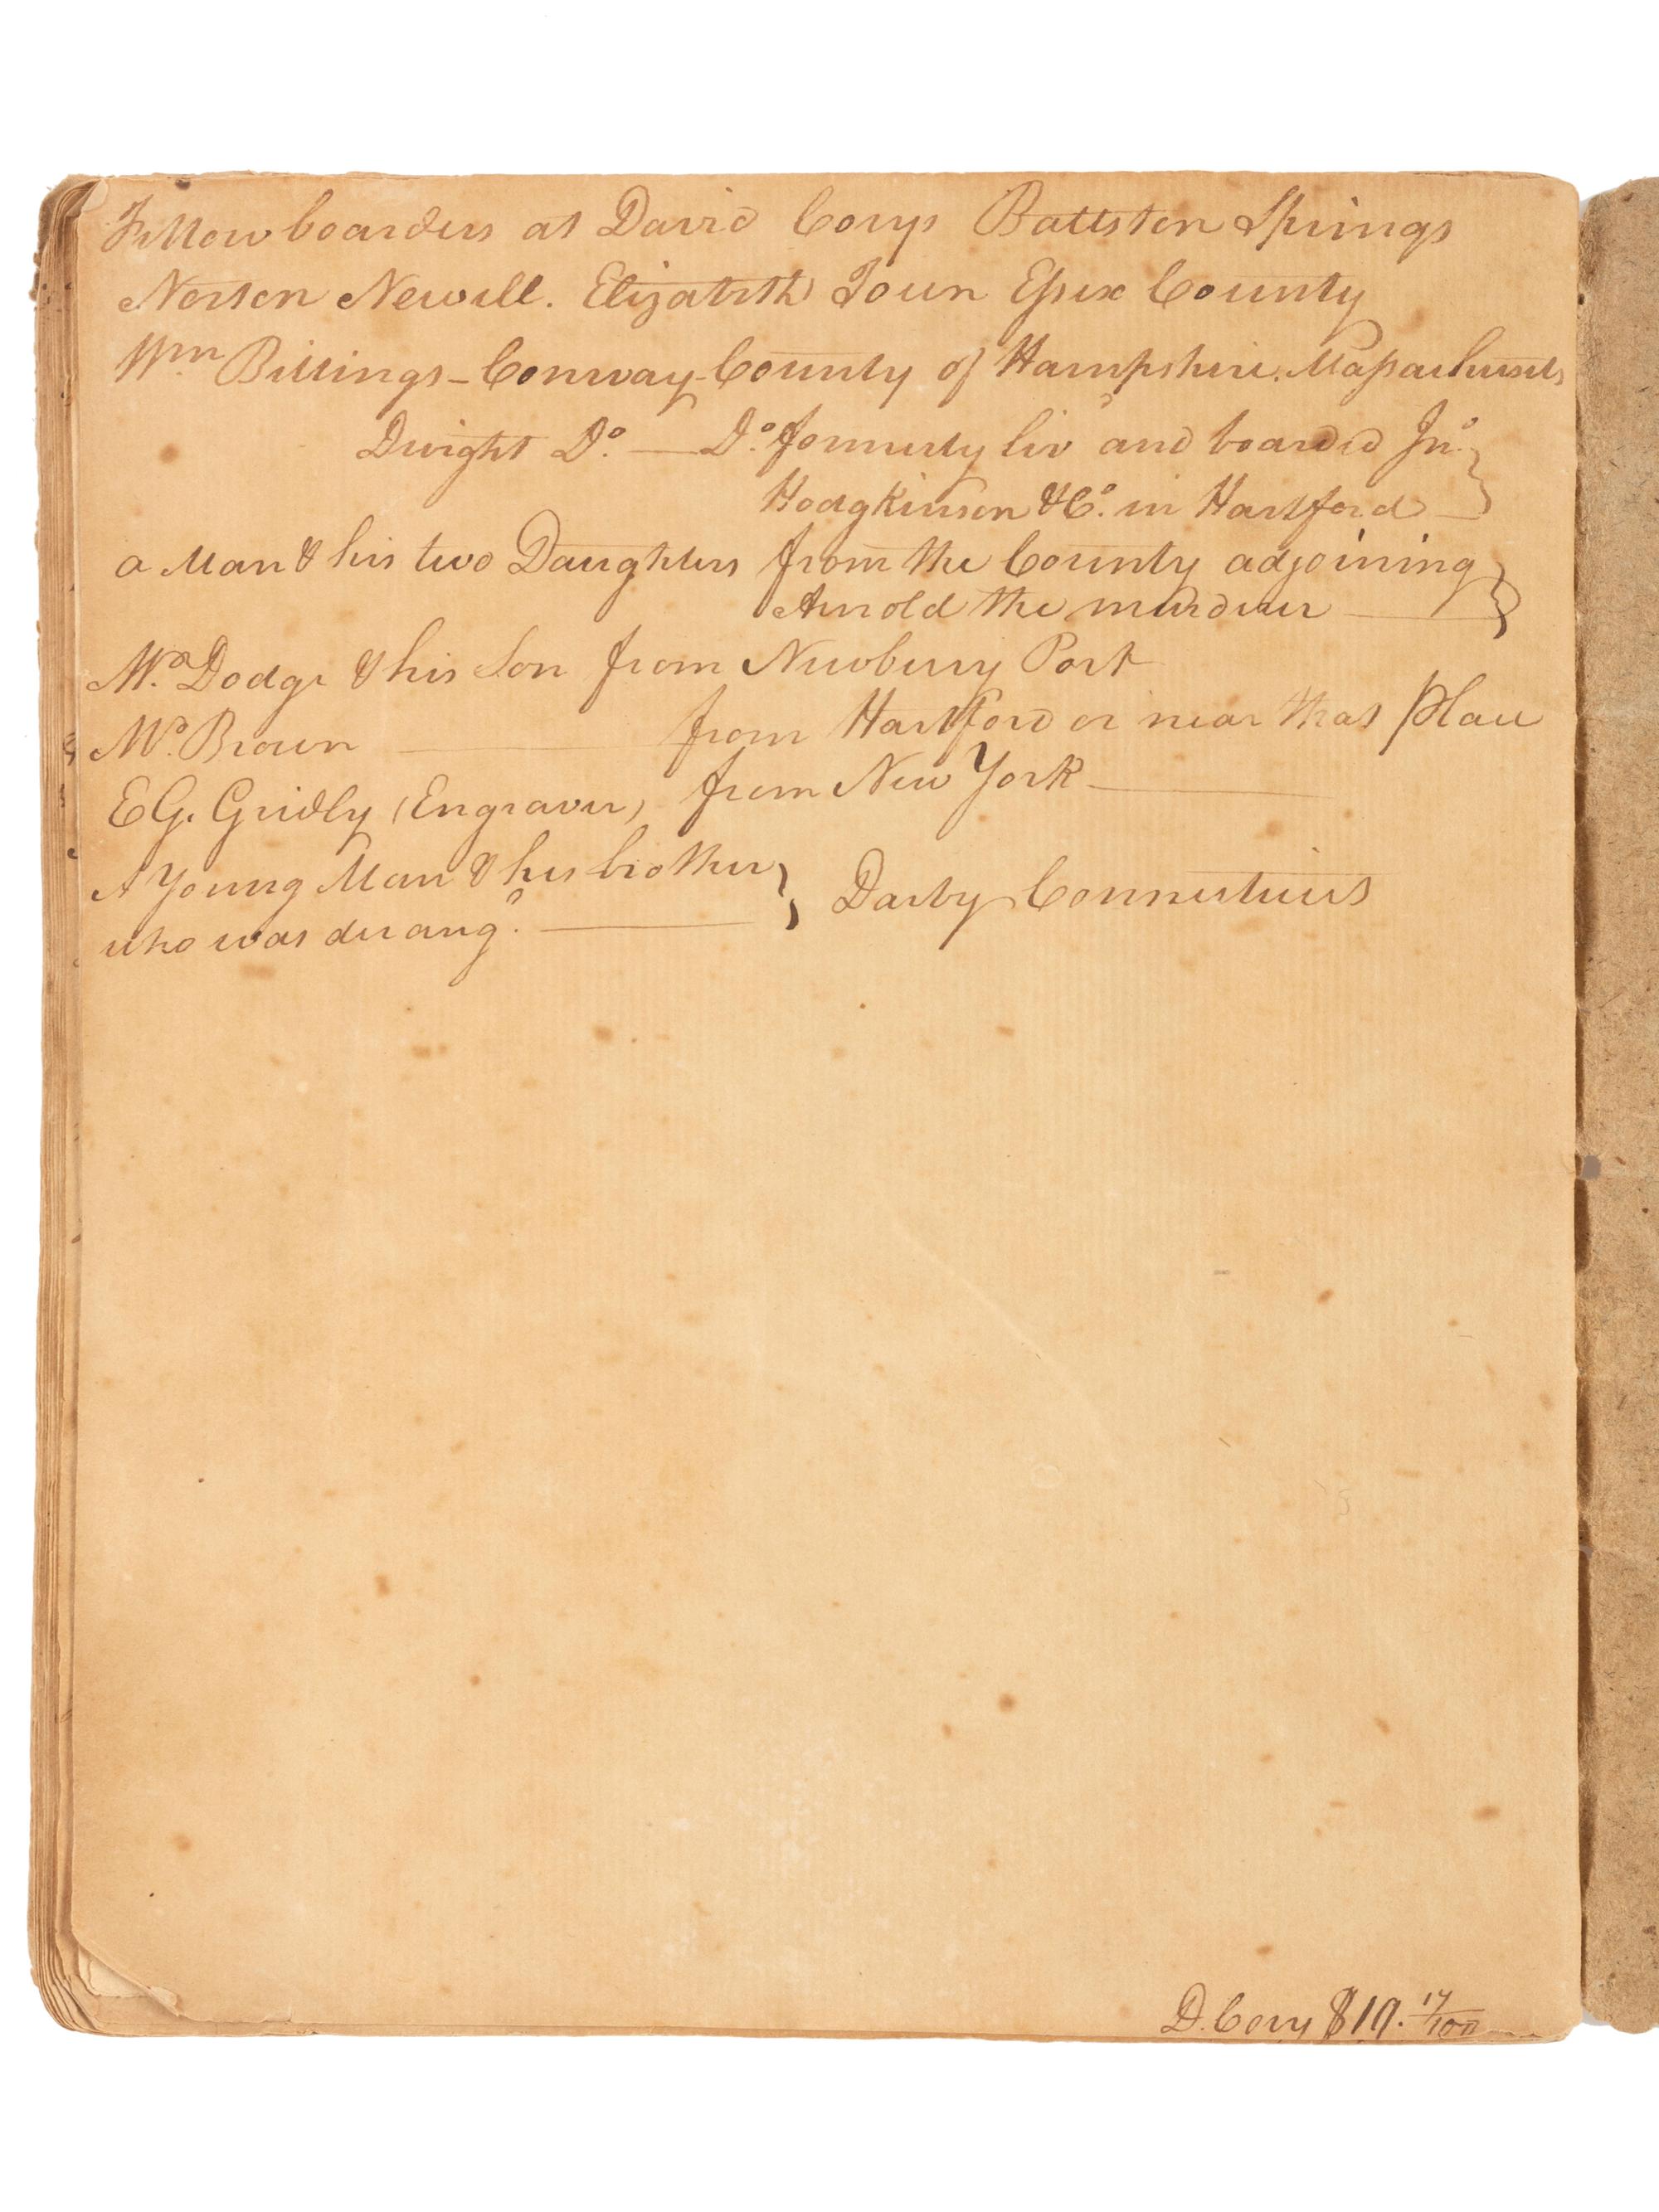 Fellow boarders at David Corys Ballston Springs
Norton Newell. Elizabeth Town Essex County
Wm Billings - Conway - County of Hampshire. Massachusets
Dwight Do. — Do. formerly liv and boarded Jno.
Hodgkinson & Co. in Hartford
a Man & his two Daughters from the County adjoining
Arnold the murderer
Mr. Dodge & his Son from Newbury Port
Mr. Brown — from Hartford or near that place
E G. Gridly (Engraver) from New York —
A Young Man & his brother
who was derangd. — } Darby Connecticut
D. Cory $19. 17/100